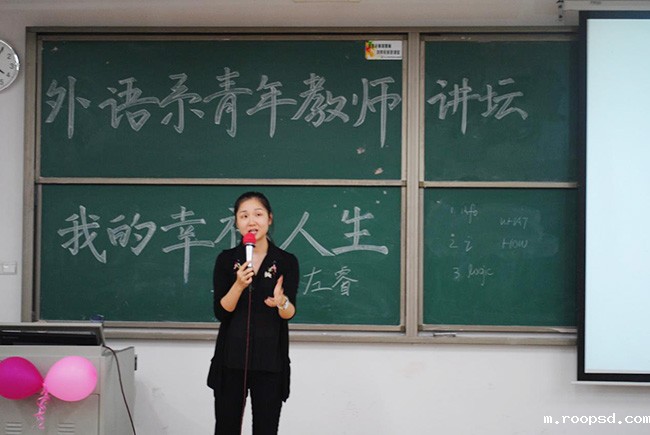 外语系青年教师 讲坛
我的幸福人生
左睿
1. info what?
2. HOW
3. Logic
m.roopsd.com